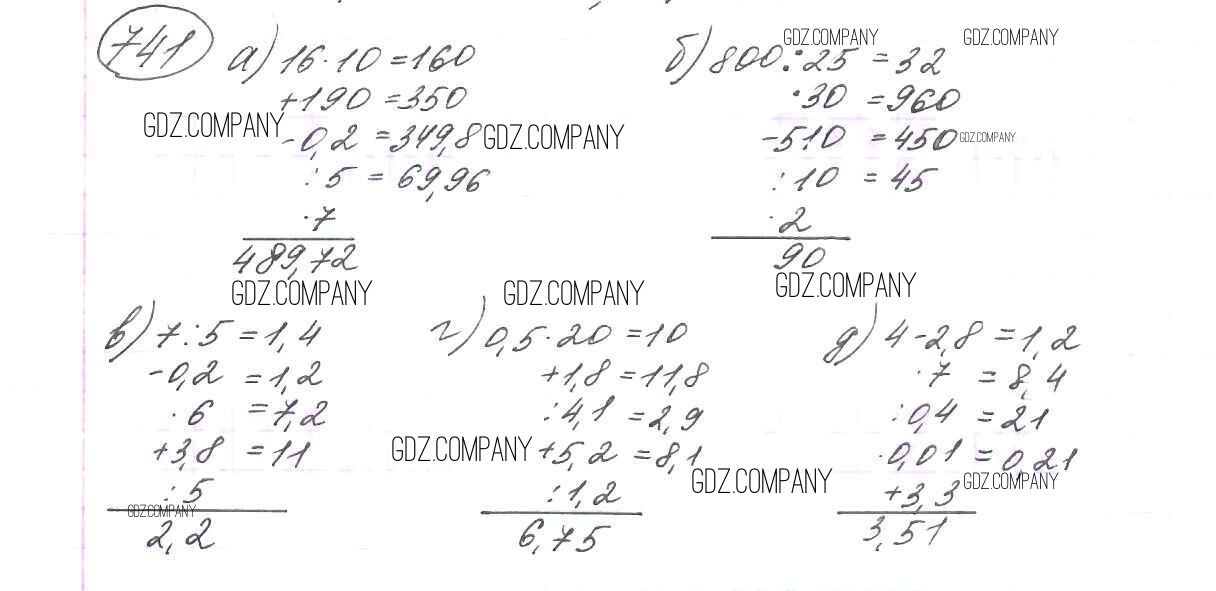 741 а) 16·10=160
+190=350
-0,2=349,8
:5=69,96
·7
489,72
б) 800:25=32
·30=960
-510=450
:10=45
·2
90
в) 7:5=1,4
-0,2=1,2
·6=7,2
+3,8=11
:5
2,2
г) 0,5·20=10
+1,8=11,8
:4,1=2,9
+5,2=8,1
:1,2
6,75
д) 4-2,8=1,2
·7=8,4
:0,4=21
·0,01=0,21
+3,3
3,51
GDZ.COMPANY
GDZ.COMPANY
GDZ.COMPANY
GDZ.COMPANY
GDZ.COMPANY
GDZ.COMPANY
GDZ.COMPANY
GDZ.COMPANY
GDZ.COMPANY
GDZ.COMPANY
GDZ.COMPANY
GDZ.COMPANY